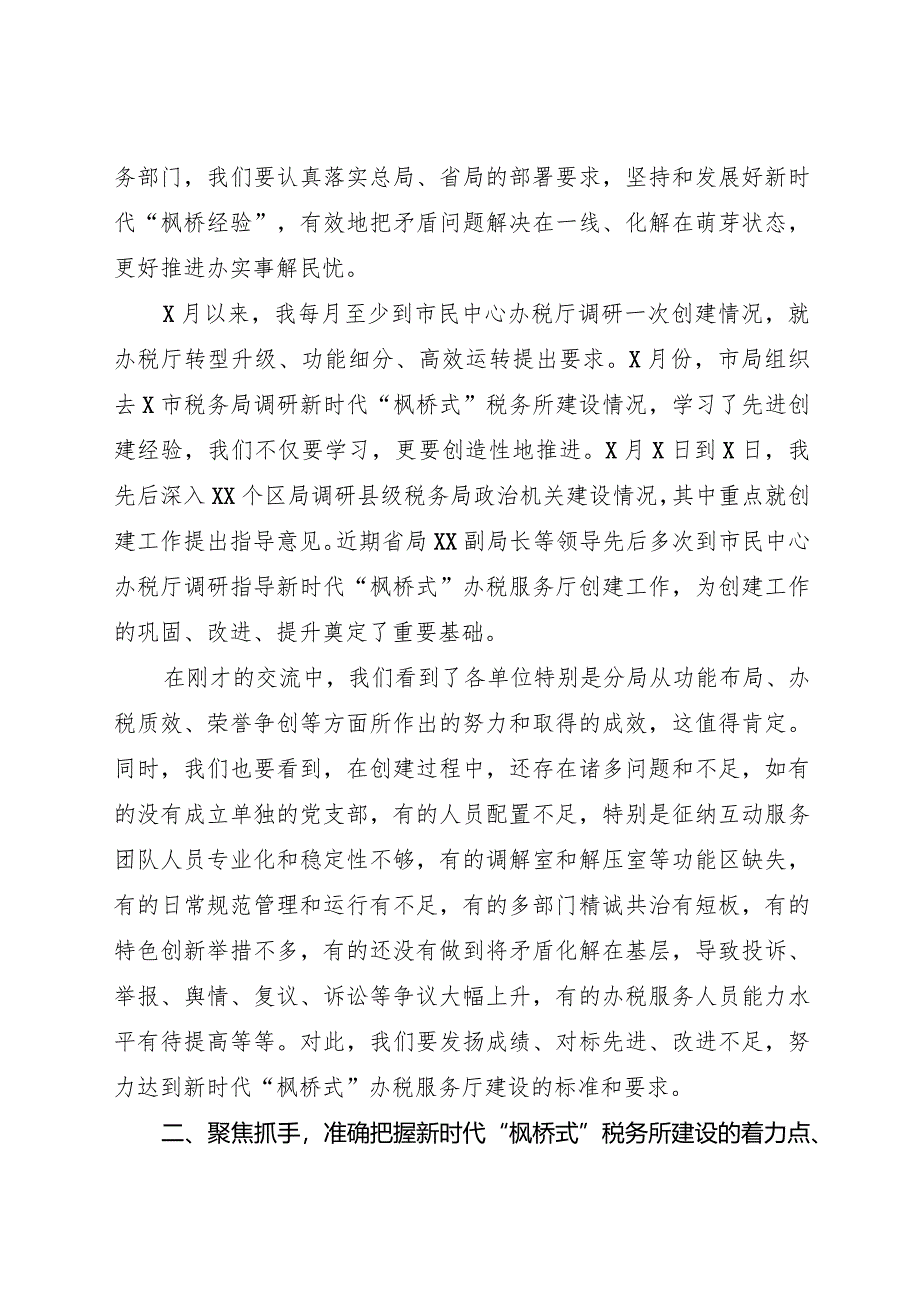 务部门，我们要认真落实总局、省局的部署要求，坚持和发展好新时
代“枫桥经验”，有效地把矛盾问题解决在一线、化解在萌芽状态，
更好推进办实事解民忧。
X 月以来，我每月至少到市民中心办税厅调研一次创建情况，就
办税厅转型升级、功能细分、高效运转提出要求。X 月份，市局组织
去 X 市税务局调研新时代“枫桥式”税务所建设情况，学习了先进创
建经验，我们不仅要学习，更要创造性地推进。X 月 X 日到 X 日，我
先后深入 XX 个区局调研县级税务局政治机关建设情况，其中重点就创
建工作提出指导意见。近期省局 XX 副局长等领导先后多次到市民中心
办税厅调研指导新时代“枫桥式”办税服务厅创建工作，为创建工作
的巩固、改进、提升奠定了重要基础。
在刚才的交流中，我们看到了各单位特别是分局从功能布局、办
税质效、荣誉争创等方面所作出的努力和取得的成效，这值得肯定。
同时，我们也要看到，在创建过程中，还存在诸多问题和不足，如有
的没有成立单独的党支部，有的人员配置不足，特别是征纳互动服务
团队人员专业化和稳定性不够，有的调解室和解压室等功能区缺失，
有的日常规范管理和运行有不足，有的多部门精诚共治有短板，有的
特色创新举措不多，有的还没有做到将矛盾化解在基层，导致投诉、
举报、舆情、复议、诉讼等争议大幅上升，有的办税服务人员能力水
平有待提高等等。对此，我们要发扬成绩、对标先进、改进不足，努
力达到新时代“枫桥式”办税服务厅建设的标准和要求。
二、聚焦抓手，准确把握新时代“枫桥式”税务所建设的着力点、